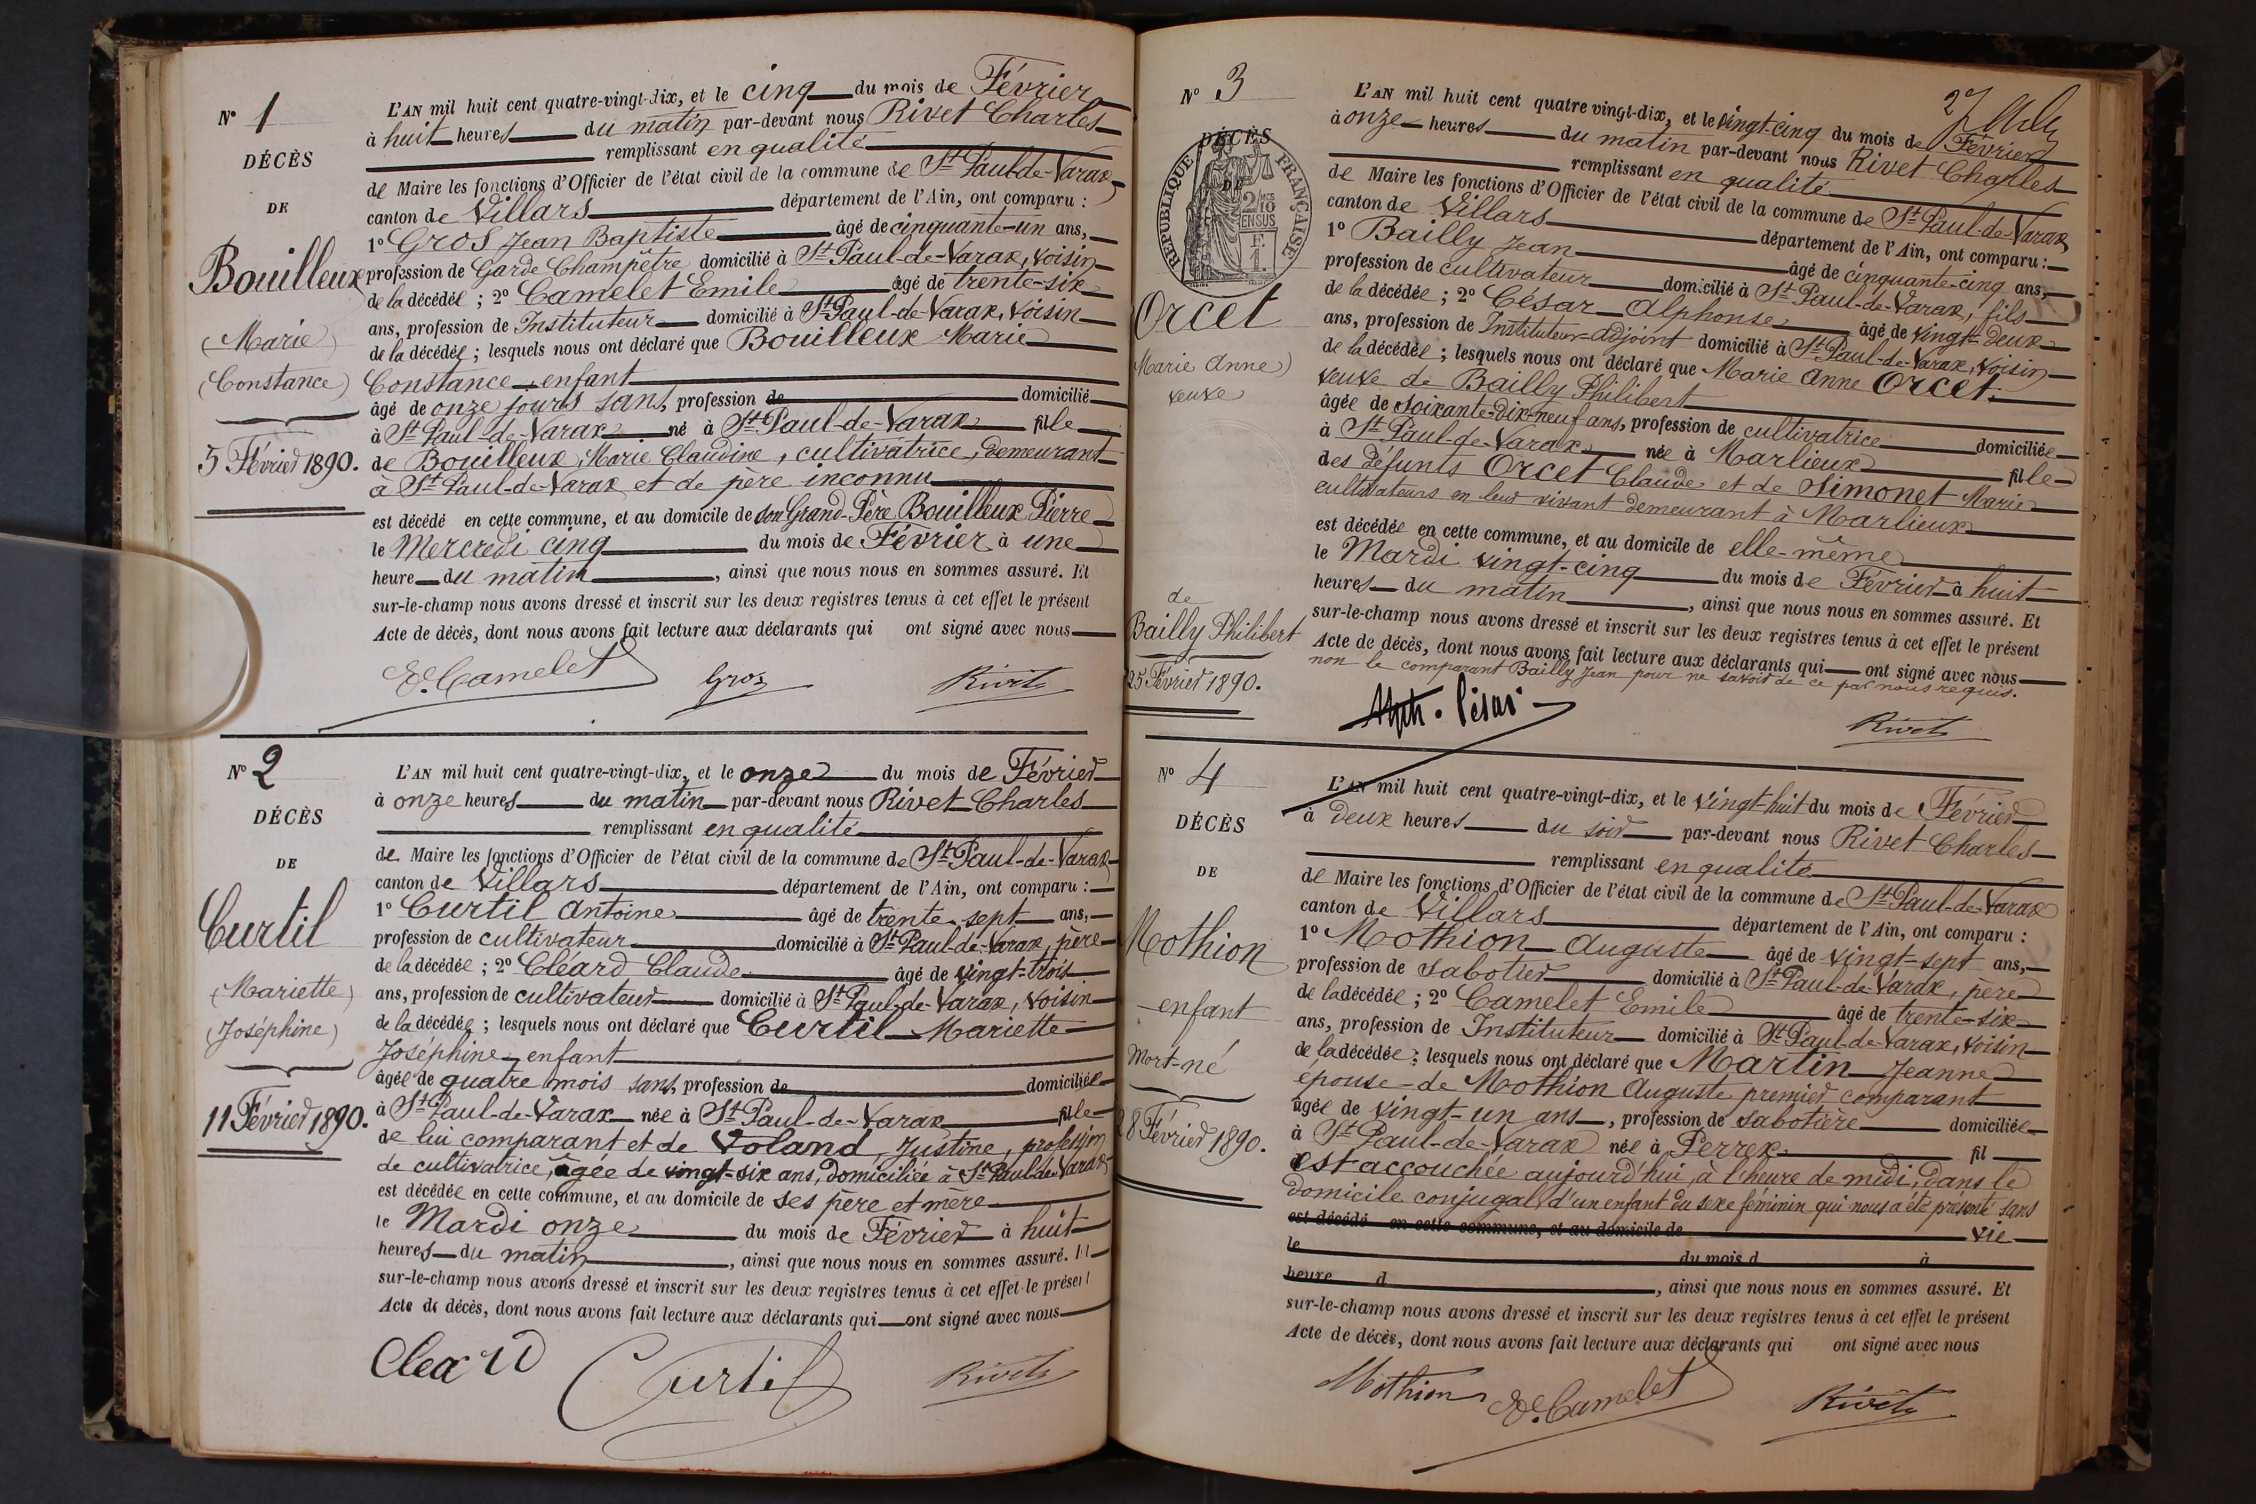 N° 1
DÉCÈS
DE
Bouilleux
(Marie)
(Constance)
5 Février 1890.
L'AN mil huit cent quatre-vingt-dix, et le cinq du mois de Février
à huit heures du matin par-devant nous Rivet Charles
remplissant en qualité
de Maire les fonctions d'Officier de l'état civil de la commune de St Paul-de-Varax,
canton de Villars département de l'Ain, ont comparu :
1° Gros Jean Baptiste âgé de cinquante-un ans,
profession de Garde Champêtre domicilié à St Paul-de-Varax, voisin
de la décédée ; 2° Camelet Emile âgé de trente-six
ans, profession de Instituteur domicilié à St Paul-de-Varax, voisin
de la décédée ; lesquels nous ont déclaré que Bouilleux Marie
Constance, enfant
âgé de onze jours sans profession de domicilié
à St Paul-de-Varax né à St Paul-de-Varax fille
de Bouilleux, Marie Claudine, cultivatrice, demeurant
à St Paul-de-Varax et de père inconnu
est décédé en cette commune, et au domicile de son Grand-Père Bouilleux Pierre
le Mercredi cinq du mois de Février à une
heure du matin, ainsi que nous nous en sommes assuré. Et
sur-le-champ nous avons dressé et inscrit sur les deux registres tenus à cet effet le présent
Acte de décès, dont nous avons fait lecture aux déclarants qui ont signé avec nous
E. Camelet Gros Rivet
N° 2
DÉCÈS
DE
Curtil
(Mariette)
(Joséphine)
11 Février 1890.
L'AN mil huit cent quatre-vingt-dix, et le onze du mois de Février
à onze heures du matin par-devant nous Rivet Charles
remplissant en qualité
de Maire les fonctions d'Officier de l'état civil de la commune de St Paul-de-Varax
canton de Villars département de l'Ain, ont comparu :
1° Curtil Antoine âgé de trente-sept ans,
profession de cultivateur domicilié à St Paul-de-Varax, père
de la décédée ; 2° Cléard Claude âgé de vingt-trois
ans, profession de cultivateur domicilié à St Paul-de-Varax, voisin
de la décédée ; lesquels nous ont déclaré que Curtil Mariette
Joséphine, enfant
âgée de quatre mois sans profession de domiciliée
à St Paul-de-Varax née à St Paul-de-Varax fille
de lui comparant et de Voland, Justine, profession
de cultivatrice, âgée de vingt-six ans, domiciliée à St Paul-de-Varax
est décédée en cette commune, et au domicile de ses père et mère
le Mardi onze du mois de Février à huit
heures du matin, ainsi que nous nous en sommes assuré. Et
sur-le-champ nous avons dressé et inscrit sur les deux registres tenus à cet effet le présent
Acte de décès, dont nous avons fait lecture aux déclarants qui ont signé avec nous
Cleard Curtil Rivet
N° 3
DÉCÈS
DE
RÉPUBLIQUE FRANÇAISE
2/10
EN SUS
Orcet
(Marie Anne)
veuve
de
Bailly Philibert
25 Février 1890.
L'AN mil huit cent quatre vingt-dix, et le vingt-cinq du mois de Février
à onze heures du matin par-devant nous Rivet Charles
remplissant en qualité
de Maire les fonctions d'Officier de l'état civil de la commune de St Paul-de-Varax
canton de Villars département de l'Ain, ont comparu :
1° Bailly Jean âgé de cinquante-cinq ans,
profession de cultivateur domicilié à St Paul-de-Varax, fils
de la décédée ; 2° César Alphonse âgé de vingt-deux
ans, profession de Instituteur-adjoint domicilié à St Paul-de-Varax, voisin
de la décédée ; lesquels nous ont déclaré que Marie Anne Orcet,
veuve de Bailly Philibert
âgée de soixante-dix-neuf ans, profession de cultivatrice domiciliée
à St Paul-de-Varax née à Marlieux fille
des défunts Orcet Claude et de Simonet Marie
cultivateurs en leur vivant demeurant à Marlieux
est décédée en cette commune, et au domicile de elle-même
le Mardi vingt-cinq du mois de Février à huit
heures du matin, ainsi que nous nous en sommes assuré. Et
sur-le-champ nous avons dressé et inscrit sur les deux registres tenus à cet effet le présent
Acte de décès, dont nous avons fait lecture aux déclarants qui ont signé avec nous
non le comparant Bailly Jean pour ne savoir de ce par nous requis.
Alph. César Rivet
N° 4
DÉCÈS
DE
Mothion
enfant
Mort-né
28 Février 1890.
L'AN mil huit cent quatre-vingt-dix, et le vingt-huit du mois de Février
à deux heures du soir par-devant nous Rivet Charles
remplissant en qualité
de Maire les fonctions d'Officier de l'état civil de la commune de St Paul-de-Varax
canton de Villars département de l'Ain, ont comparu :
1° Mothion Auguste âgé de vingt-sept ans,
profession de sabotier domicilié à St Paul-de-Varax, père
de la décédée ; 2° Camelet Emile âgé de trente-six
ans, profession de Instituteur domicilié à St Paul-de-Varax, voisin
de la décédée ; lesquels nous ont déclaré que Martin Jeanne
épouse de Mothion Auguste premier comparant
âgée de vingt-un ans, profession de sabotière domiciliée
à St Paul-de-Varax née à Perrex fil
est accouchée aujourd'hui, à l'heure de midi, dans le
domicile conjugal, d'un enfant du sexe féminin qui nous a été présenté sans
est décédé en cette commune, et au domicile de vie
le du mois d à
heure d, ainsi que nous nous en sommes assuré. Et
sur-le-champ nous avons dressé et inscrit sur les deux registres tenus à cet effet le présent
Acte de décès, dont nous avons fait lecture aux déclarants qui ont signé avec nous
Mothion E. Camelet Rivet